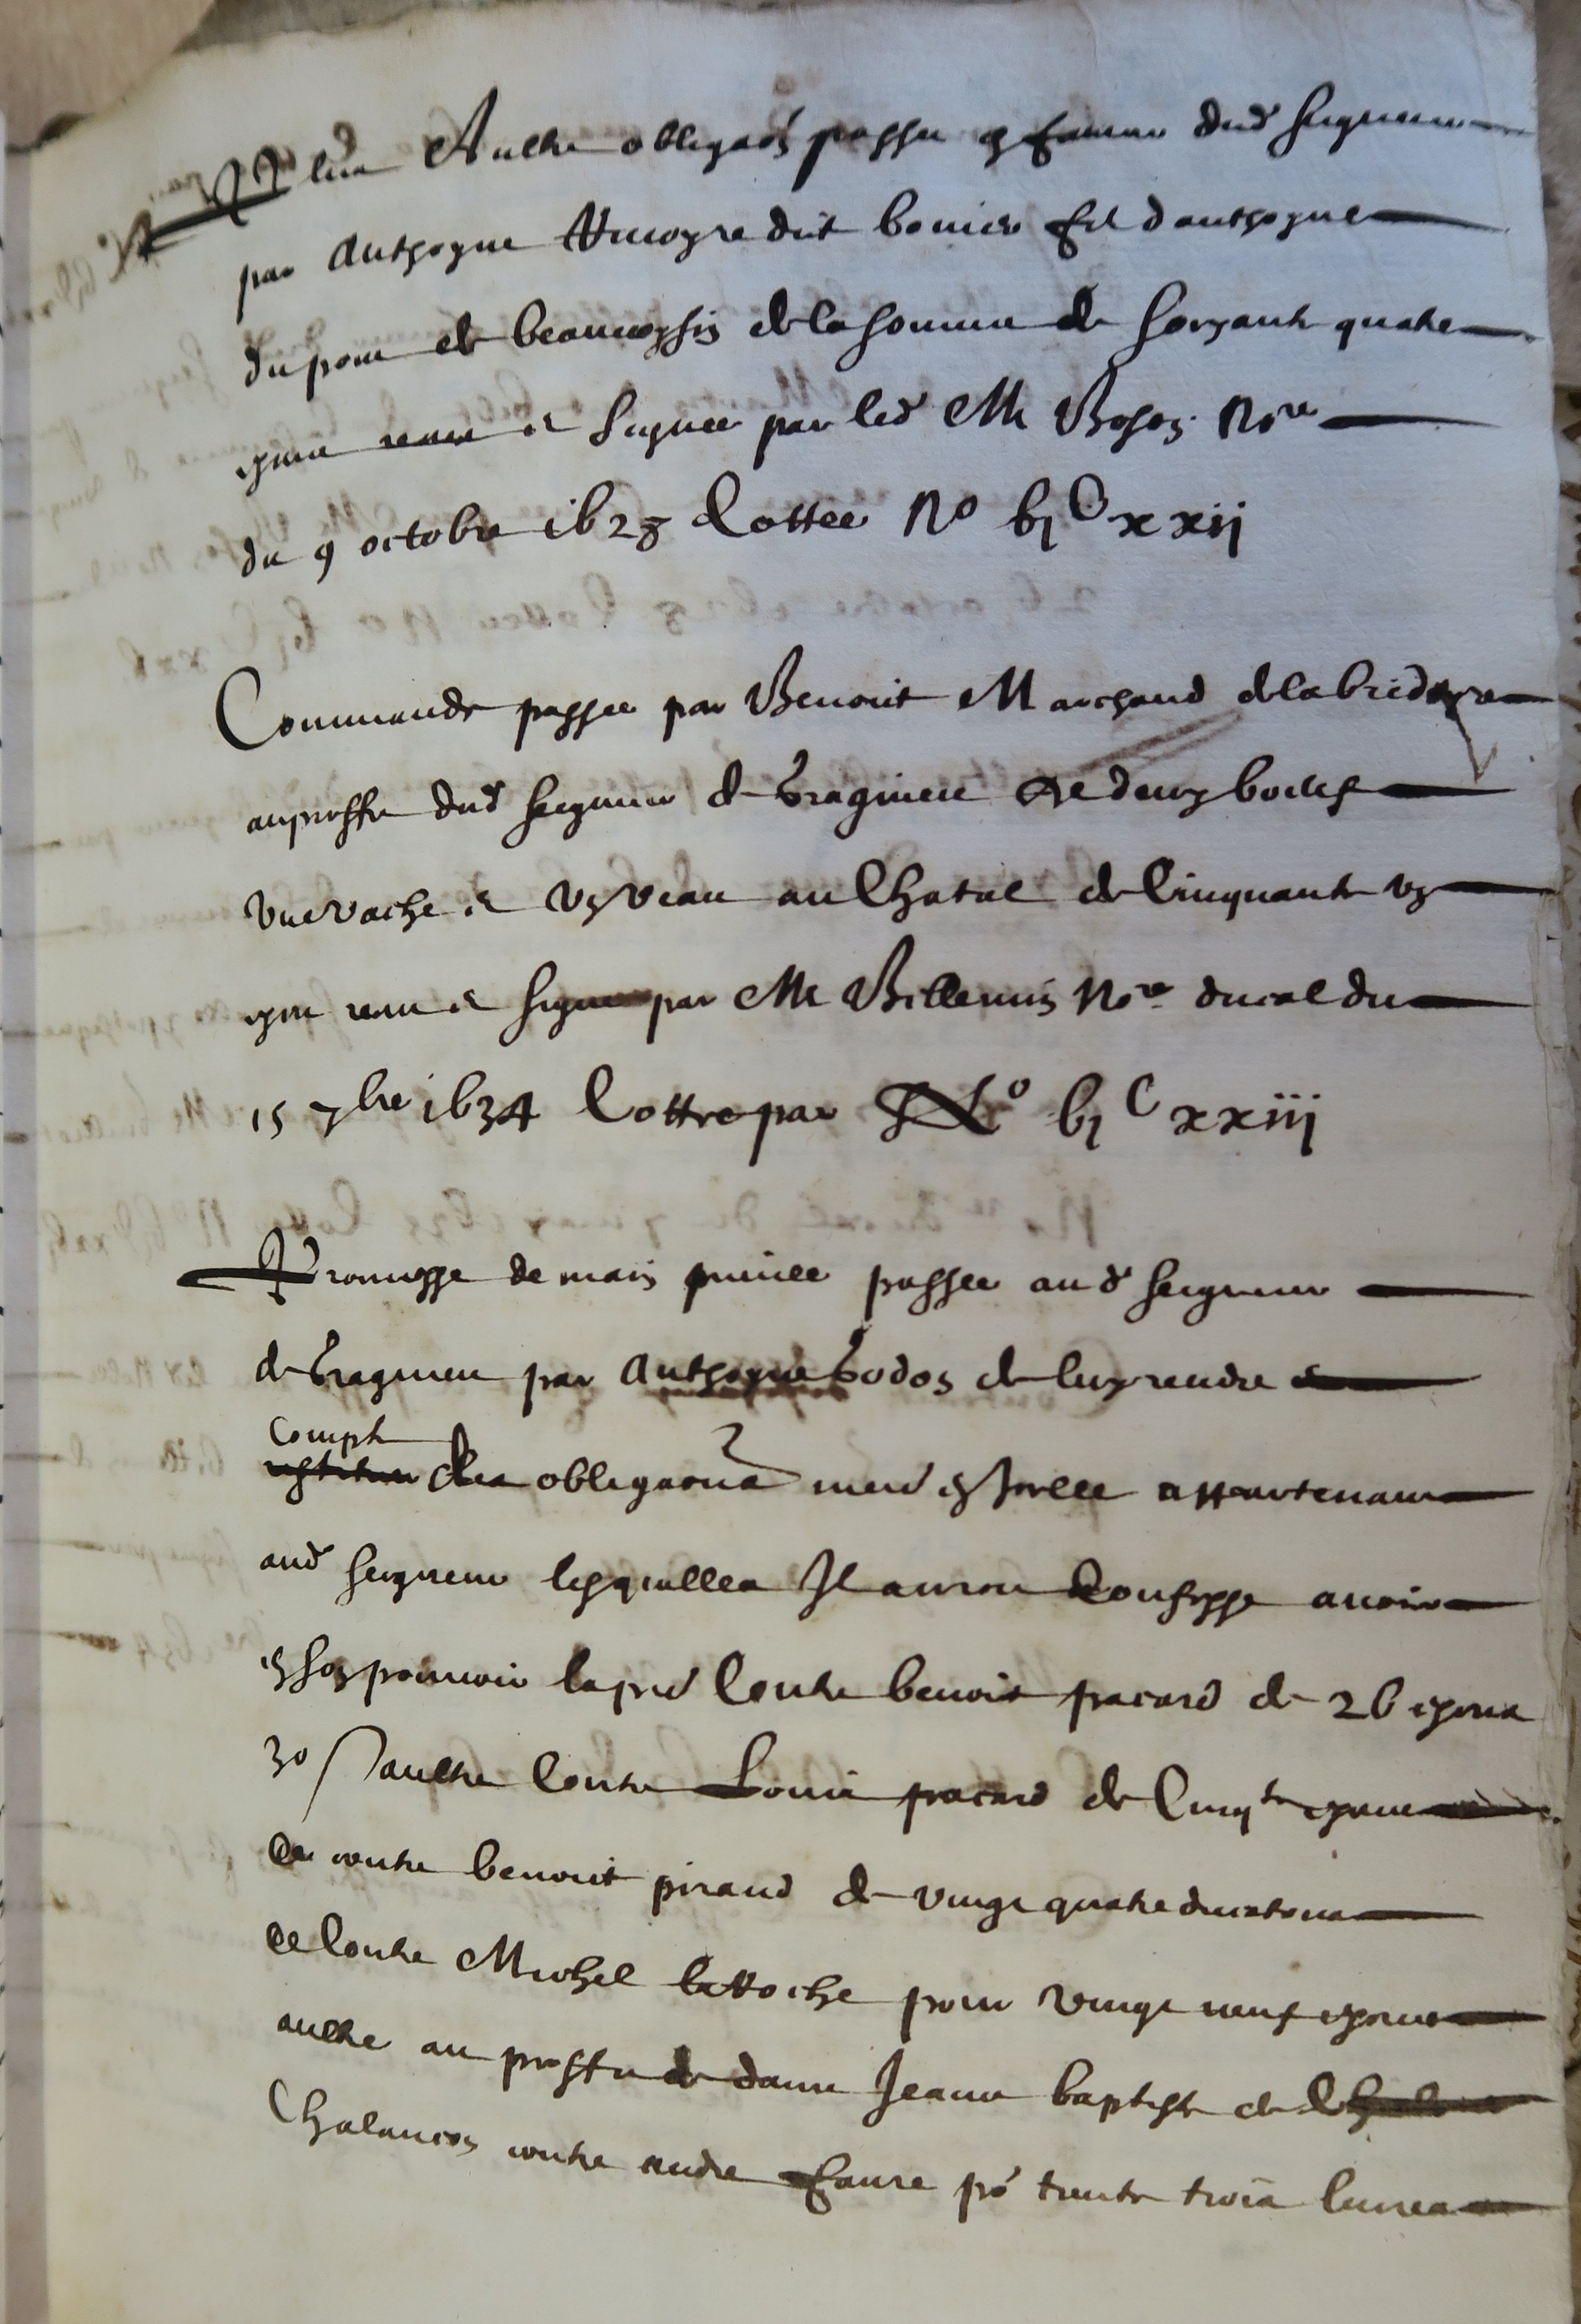 Plus Aultre obligaõn passee en faveur dud seigneur
par Anthoyne dit bonier filz d'anthoyne
du pont de beauvoysin de la somme de soixante quatre
receue et signee par led Me Boson Nore
du 9 octobre ib28 Cottee No bjC xxij
Commande passee par Benoit Marchand de la bridoyre
au proffit dud seigneur de Vragnieu de deux boeufs
une vache et un veau au Chatal de Cinquante un
receu et signe par Me Billemin Nore ducal du
15 7bre ib34 Cottee par No bjC xxiij
Promesse de main privee passee aud seigneur
de Vragnieu par Anthoyne Bodon de luy rendre
Compte
des obligaons appartenans
aud seigneur lesquelles Il auroit Confesse avoir
en son pouvoir la pre Contre benoit pacard de 26
30 s aultre Contre Louis pacard de Cinqte
contre benoit piraud de vingt quatre ducatons
Contre Michel laRoche pour vingt neuf
aultre au proffit de dame Jeanne baptiste de
Chalancon contre andre Faure po trente trois livres